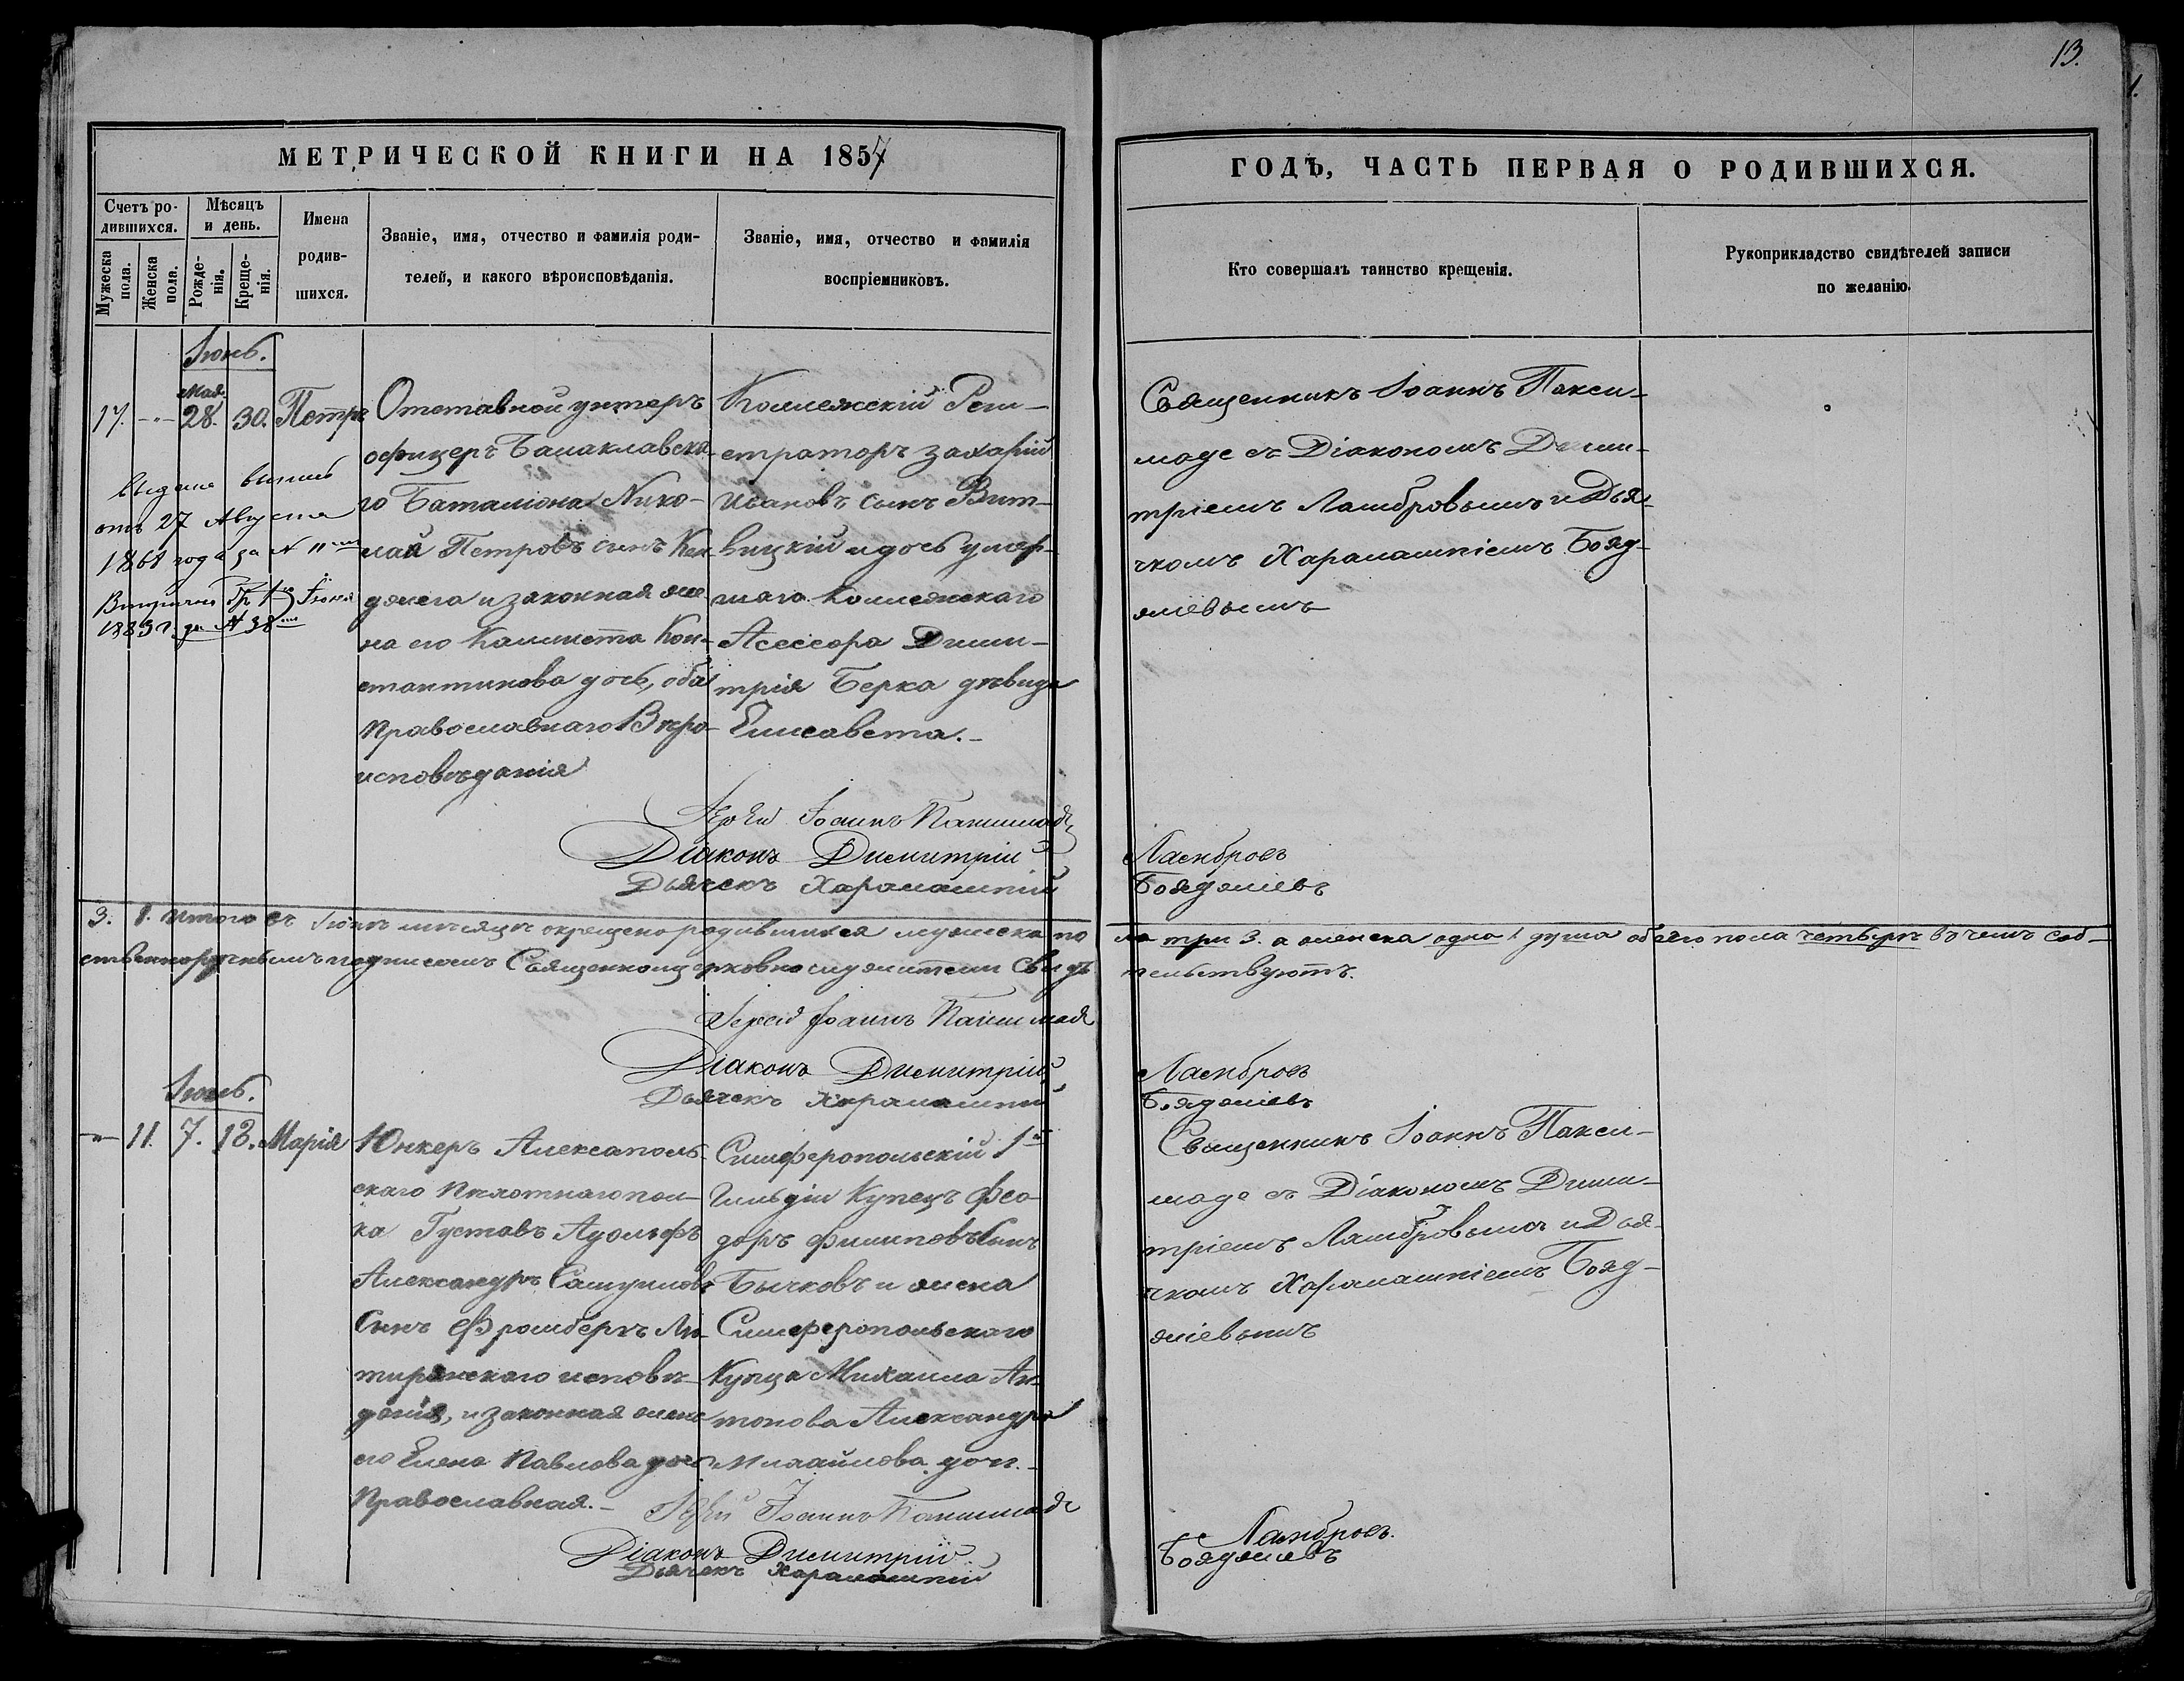 13.
МЕТРИЧЕСКОЙ КНИГИ НА 1857
ГОДЪ, ЧАСТЬ ПЕРВАЯ О РОДИВШИХСЯ.
Счетъ ро-
дившихся.
Мужеска
пола.
Женска
пола.
Мѣсяцъ
и день.
Рожде-
нія.
Креще-
нія.
Имена
родив-
шихся.
Званіе, имя, отчество и фамилія роди-
телей, и какого вѣроисповѣданія.
Званіе, имя, отчество и фамилія
воспріемниковъ.
Кто совершалъ таинство крещенія.
Рукоприкладство свидѣтелей записи
по желанію.
Іюнь.
Мая
17. -"- 28. 30. Петръ
Отставной унтеръ
офицеръ Балаклавска-
го Баталіона Нико-
лай Петровъ сынъ
и законная же-
на его Каллиста Кон-
стантинова дочь, оба
Православнаго Вѣро-
исповѣданія
Коллежскій Реги-
страторъ Захарій
Ивановъ сынъ Вит-
вицкій и дочь умер-
шаго Коллежскаго
Асессора Дими-
трія Берка дѣвица
Елисавета.-
Священникъ Іоаннъ Пакси-
маде съ Діакономъ Дими-
тріемъ Ламбровымъ и Дья-
чкомъ Харалампіемъ Бояд-
жіевымъ
от 27 Августа
1861 года за №
Іюня
1883 г. за № 38
Іоаннъ Паксимаде
Діаконъ Димитрій Ламбровъ
Дьячекъ Харалампій Бояджіевъ
3. 1. Итого въ Іюнѣ мѣсяцѣ окрещено родившихся мужеска по-
ла три 3. а женска одна 1 душа обоего пола четыре въ чемъ соб-
ственноручнымъ подписомъ Священноцерковнослужители Свидѣ-
тельствуютъ.
Іерей Іоаннъ Паксимаде
Діаконъ Димитрій Ламбровъ
Дьячекъ Харалампій Бояджіевъ
Іюль.
-"- 11. 7. 18. Марія
Юнкеръ Алексаполь-
скаго Пѣхотнаго пол-
ка Густавъ Адольфъ
Александръ Самуиловъ
Сынъ Фромбергъ Лю-
тиранскаго исповѣ-
данія, и законная жена
его Елена Павлова дочь
Православная.-
Симферопольскій 1й
Гильдіи Купецъ Фео-
доръ Филиповъ Сынъ
Бычковъ и жена
Симферопольскаго
Купца Михаила Ан-
тонова Александра
Михайлова доч.-
Священникъ Іоаннъ Пакси-
маде съ Діакономъ Дими-
тріемъ Ламбровымъ и Дья-
чкомъ Харалампіемъ Бояд-
жіевымъ
Іоаннъ Паксимаде
Діаконъ Димитрій Ламбровъ.
Дьячекъ Харалампій Бояджіевъ